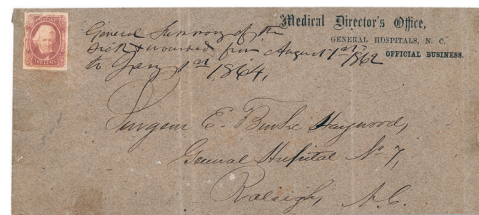 Medical Director's Office,
GENERAL HOSPITALS, N. C.
OFFICIAL BUSINESS.
General Summary of the
Sick & wounded from August 1st 1862
to Jany 1st 1864,
Surgeon E. Burke Haywood,
General Hospital No 7,
Raleigh, N.C.